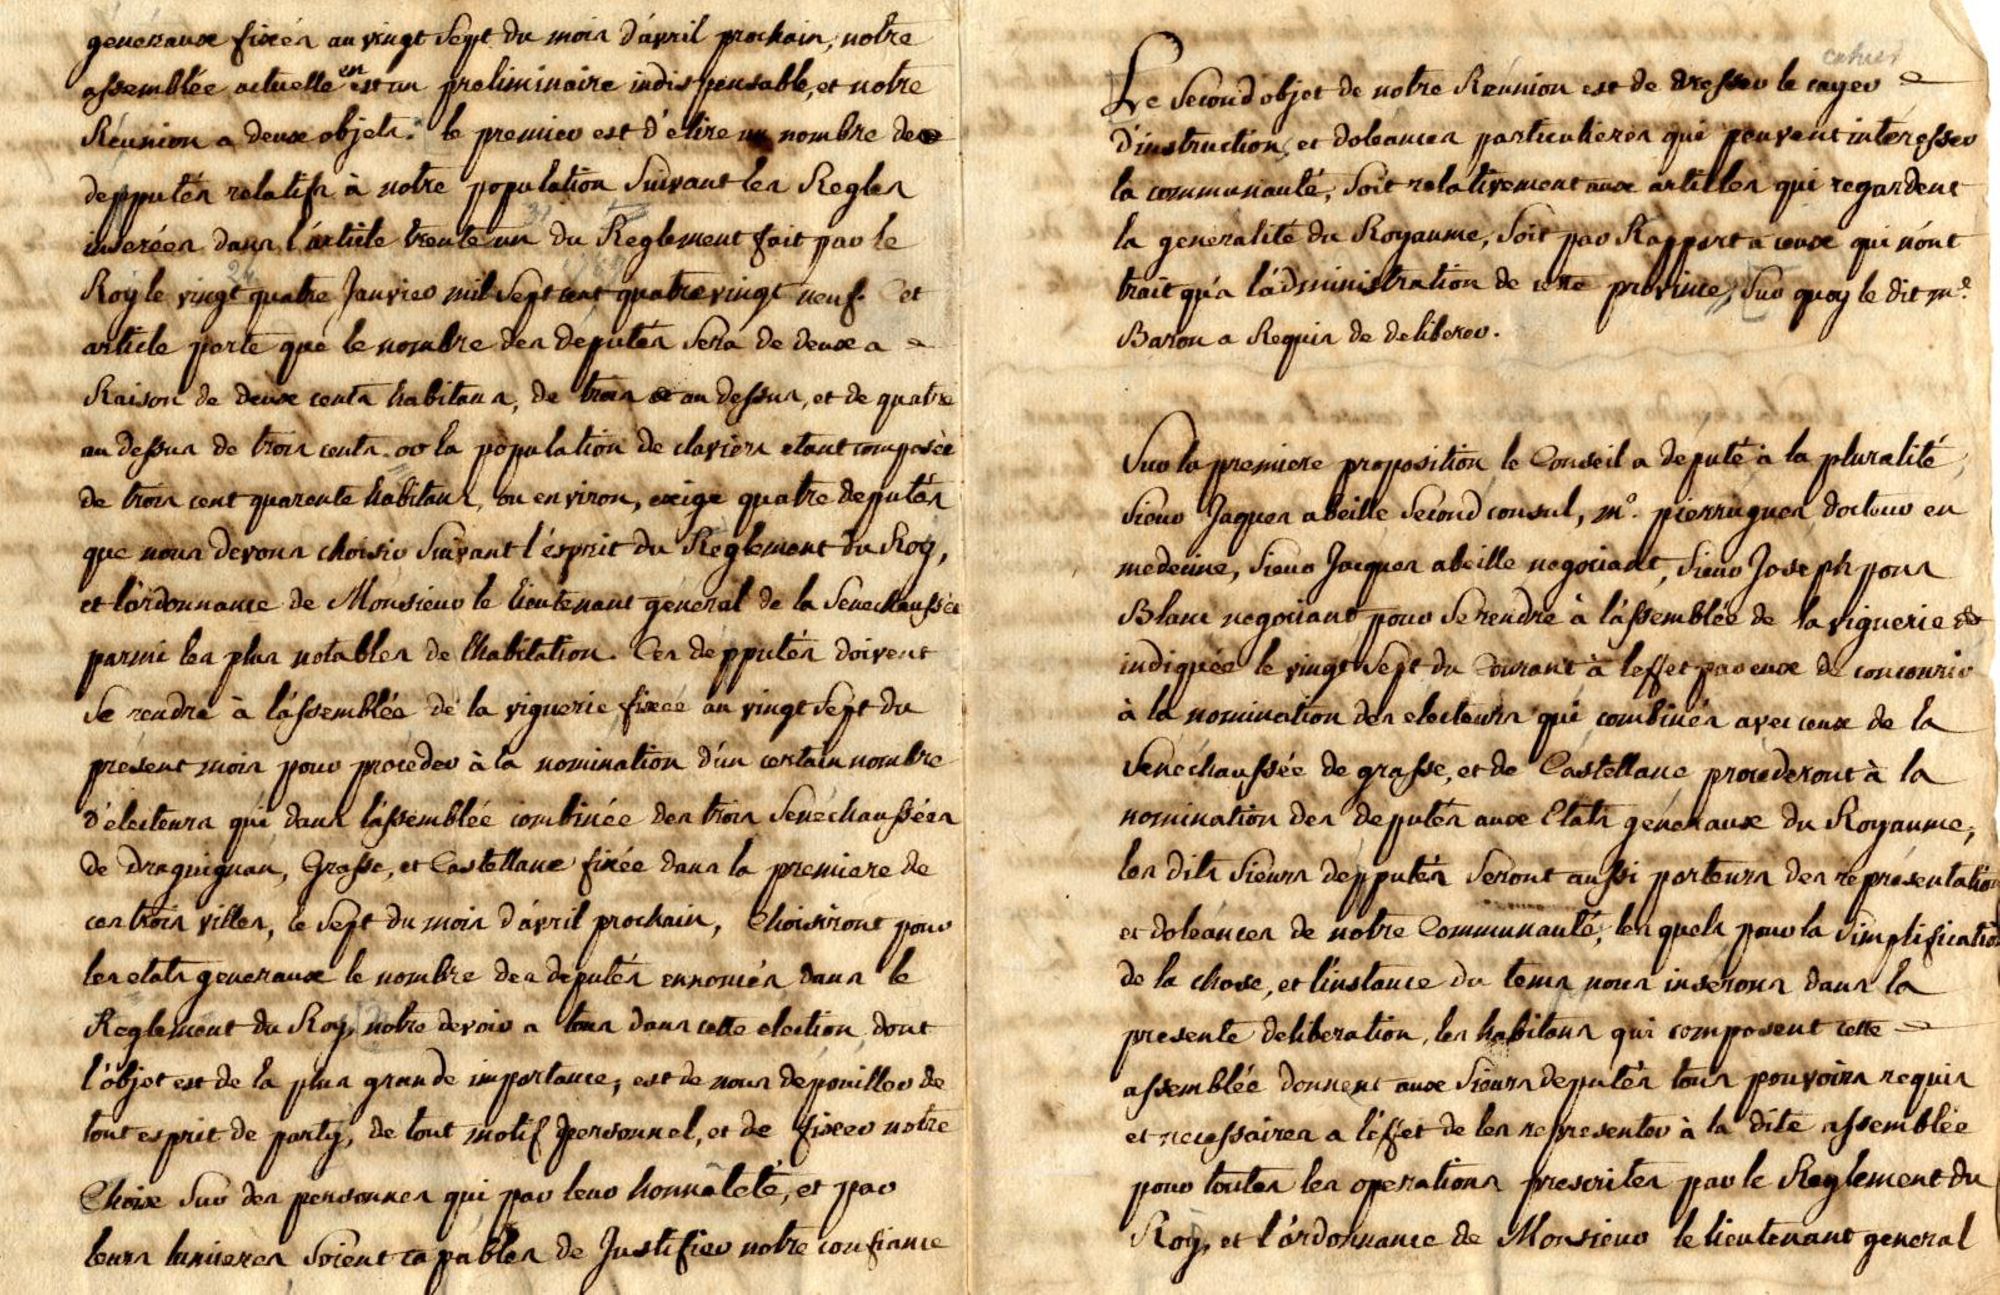 generaux fixés au vingt sept du mois d'avril prochain, notre
assemblée actuelle en est un preliminaire indispensable, et notre
Réunion a deux objets. le premier est d'élire un nombre de
depputés relatifs à notre population suivant les Regles
inserées dans l'article trente un du Reglement fait par le
Roy le vingt quatre Janvier mil sept cent quatre vingt neuf. Cet
article porte que le nombre des deputés sera de deux a
Raison de deux cents habitans, de trois au dessus, et de quatre
au dessus de trois cents. or la population de claviers etant composée
de trois cent quarente habitans, ou environ, exige quatre deputés
que nous devons choisir suivant l'ésprit du Reglement du Roy,
et l'ordonnance de Monsieur le lieutenant général de la Senechaussée
parmi les plus notables de l'habitation. Ces depputés doivent
se rendre à l'assemblée de la viguerie fixée au vingt sept du
présent mois pour proceder à la nomination d'un certain nombre
d'électeurs qui dans l'assemblée combinée des trois Senéchaussées
de Draguignan, Grasse, et Castellane fixée dans la premiere de
ces trois villes, le sept du mois d'avril prochain, Choisiront pour
les etats generaux le nombre des deputés ennoncés dans le
Reglement du Roy, notre devoir a tous dans cette election, dont
l'objet est de la plus grande importance, est de nous depouiller de
tout esprit de party, de tout motif personnel, et de fixer notre
Choix sur des personnes qui par leur honnêteté, et par
leurs lumieres soient capables de Justifier notre confiance
cahier
Le Second objet de notre Réunion est de dresser le cayer
d'instruction, et doleances particulieres qui peuvent intéresser
la communauté, soit relativement aux articles qui regardent
la generalité du Royaume, soit par Rapport a ceux qui n'ont
trait qu'a l'administration de cette province, sur quoy le dit me.
Baron a Requis de deliberer.
Sur la premiere proposition le Conseil a deputé à la pluralité,
sieur Jaques abeille second consul, me. pierrugues docteur en
medecine, sieur Jacques abeille negociant, sieur Joseph pons
Blanc negociant pour se rendre à l'assemblée de la viguerie
indiquée le vingt sept du Courant à l'effet par eux de concourir
à la nomination des electeurs qui combinés avec ceux de la
Senéchaussée de grasse, et de Castellane procederont à la
nomination des deputés aux Etats généraux du Royaume,
les dits sieurs depputés seront aussi porteurs des représentations
et doleances de notre Communauté, les quels pour la simplification
de la chose, et l'instance du tems nous inserons dans la
presente deliberation, les habitans qui composent cette
assemblée donnent aux sieurs deputés tous pouvoirs requis
et necessaires a l'effet de les representer à la dite assemblée
pour toutes les operations prescrites par le Reglement du
Roy, et l'ordonnance de Monsieur le lieutenant general